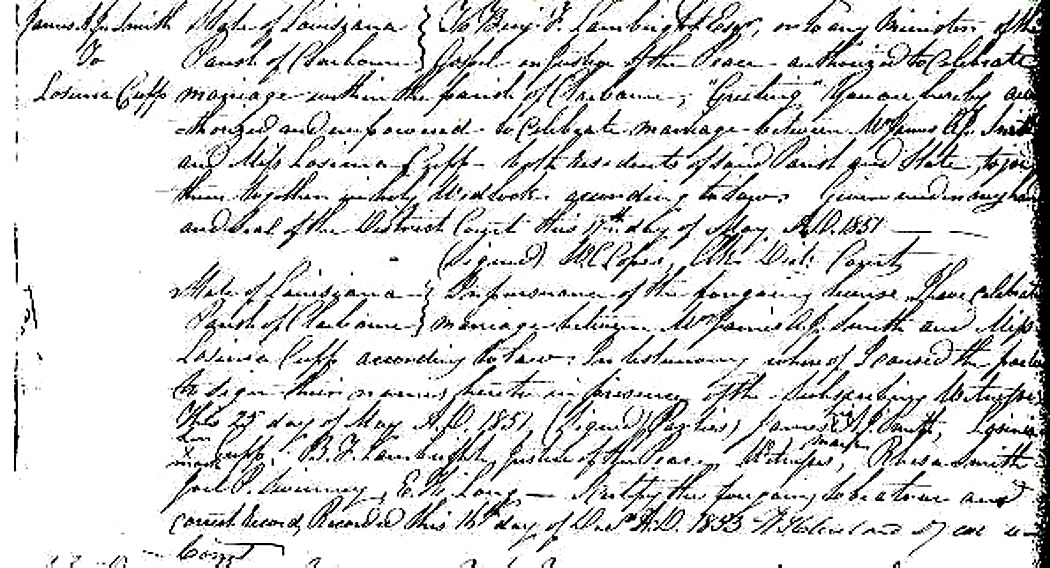 James A J Smith State of Louisiana } To Benj. F. Lambright Esqr, or to any Minister of the
To Parish of Claiborne } Gospel or Justice of the Peace - authorized to Celebrate
Losinia Cupp marriage within the parish of Claiborne, "Greeting" You are hereby au
thorized and empowered to Celebrate marriage between Mr James A J. Smith
and Miss Losinia Cupp - both Residents of said Parish and State, to join
them together in holy Wedlock according to law. Given under my hand
and Seal of the District Court this 17th day of May A.D. 1851
(Signed) W C Copes, Clk Dist. Court
State of Louisiana } In pursuance of the foregoing license I have celebrat
Parish of Claiborne } marriage between Mr James A J Smith and Miss
Losinia Cupp according to law. In testimony whereof I caused the parties
to sign their names hereto in presence of the Subscribing Witnesses
This 25 day of May A.D. 1851 (Signed) Parties, James A J his Smith, Losinia
mark
mark Cupp, B. F. Lambright, Justice of the Peace, Witnesses, Smith
Joel P. E. W. Long - I certify the foregoing to be a true and
correct Record, Recorded this 16th day of A.D. 1853
Court